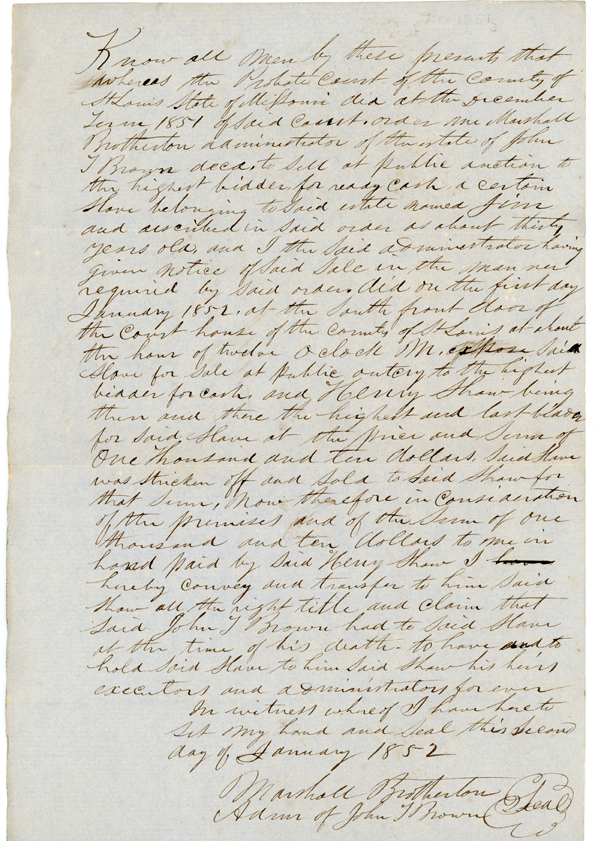 Know all men by these presents that
whereas the Probate Court of the County of
St Louis State of Missouri did at the December
Term 1851 of said Court. order me Marshall
Brotherton administrator of the estate of John
T Brown decd. to sell at public auction to
the highest bidder for ready cash a certain
Slave belonging to said estate named Jim
and described in said order as about thirty
years old, and I the said administrator having
given notice of said sale in the manner
required by said order. did on the first day
January 1852. at the south front door of
the Court house of the county of St Louis at about
the hour of twelve o clock M. expose said
slave for sale at public outcry to the highest
bidder for cash, and Henry Shaw being
then and there the highest and last bidder
for said slave at the price and sum of
One thousand and ten dollars. said slave
was stricken off and sold to said Shaw for
that sum, Now therefore in consideration
of the premises and of the sum of one
thousand and ten dollars to me in
hand paid by said Henry Shaw I have
hereby convey and transfer to him said
Shaw all the right title and claim that
said John T Brown had to said slave
at the time of his death. to have and to
hold said slave to him said Shaw his heirs
executors and administrators for ever
In witness whereof I have hereto
set my hand and seal this second
day of January 1852
Marshall Brotherton Seal
Admr of John T Brown